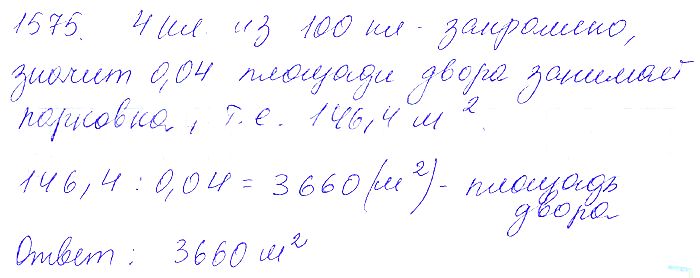 1575. 4 кл из 100 кл - закрашено,
значит 0,04 площади двора занимает
парковка, т.е. 146,4 м²
146,4 : 0,04 = 3660 (м²) - площадь
двора
Ответ: 3660 м²